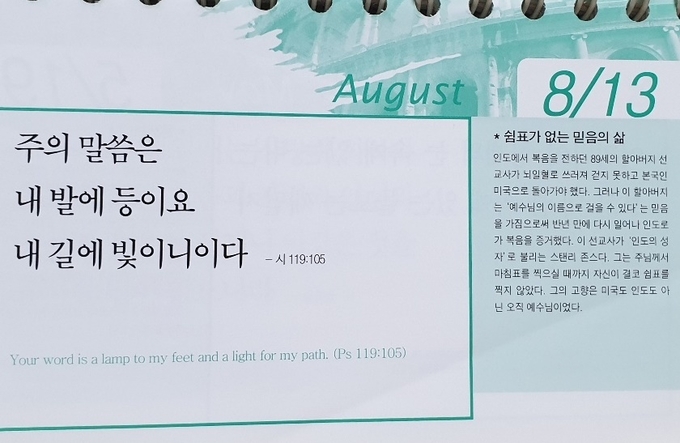 August
8/13
주의 말씀은
내 발에 등이요
내 길에 빛이니이다 - 시 119:105
Your word is a lamp to my feet and a light for my path. (Ps 119:105)
* 쉼표가 없는 믿음의 삶
인도에서 복음을 전하던 89세의 할아버지 선
교사가 뇌일혈로 쓰러져 걷지 못하고 본국인
미국으로 돌아가야 했다. 그러나 이 할아버지
는 '예수님의 이름으로 걸을 수 있다'는 믿음
을 가짐으로써 반년 만에 다시 일어나 인도로
가 복음을 증거했다. 이 선교사가 '인도의 성
자'로 불리는 스탠리 존스다. 그는 주님께서
마침표를 찍으실 때까지 자신이 결코 쉼표를
찍지 않았다. 그의 고향은 미국도 인도도 아
닌 오직 예수님이었다.